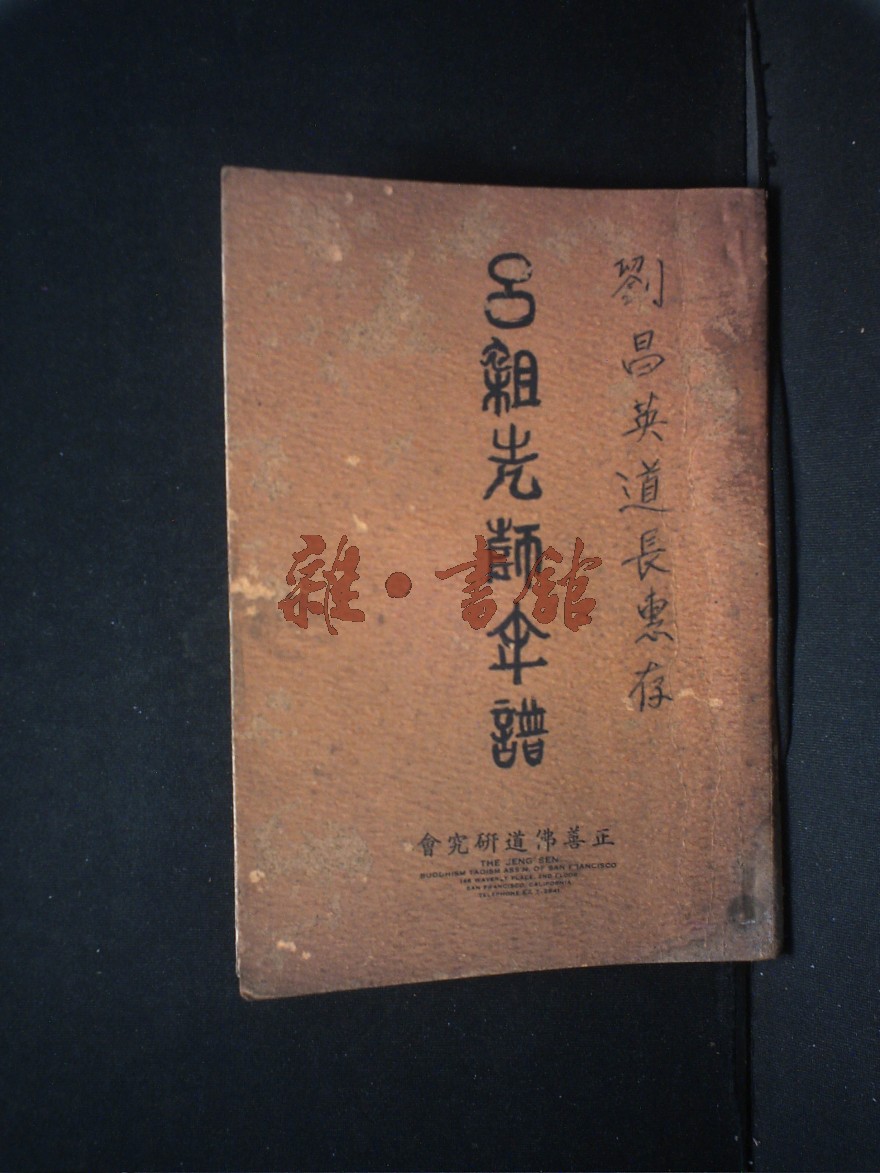 劉昌英道長惠存
呂祖先師年譜
雜·書館
正善佛道研究會
THE JENG SEN
BUDDHISM TAOISM ASS'N. OF SAN FRANCISCO
WAVERLY PLACE, 2ND FLOOR
SAN FRANCISCO, CALIFORNIA
TELEPHONE